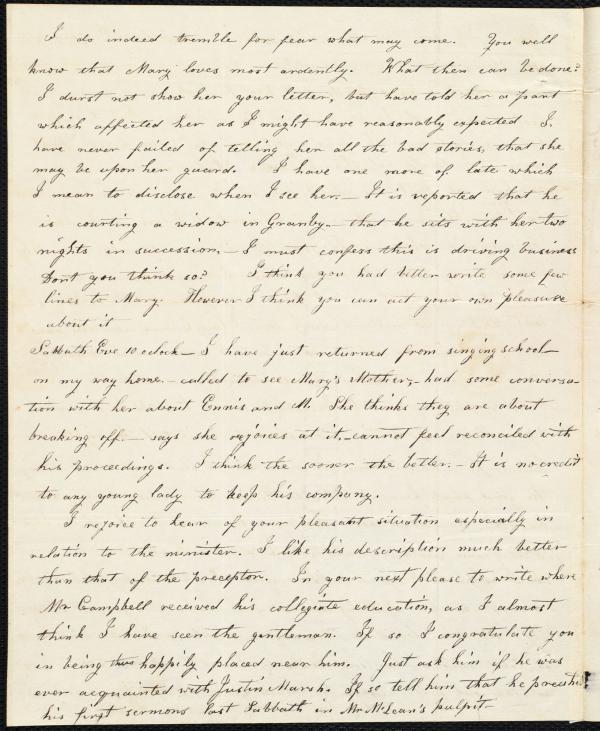 I do indeed tremble for fear what may come. You well
know that Mary loves most ardently. What then can be done?
I durst not show her your letter, but have told her a part
which affected her as I might have reasonably expected I,
have never failed of telling her all the bad stories, that she
may be upon her guard. I have one more of late which
I mean to disclose when I see her. — It is reported that he
is courting a widow in Granby — that he sits with her two
nights in succession. — I must confess this is driving business
Dont you think so? I think you had better write some few
lines to Mary. However I think you can act your own pleasure
about it
Sabbath Eve 10 oclock — I have just returned from singing school —
on my way home. — called to see Mary's Mother, — had some conversa-
tion with her about Ennis and M. She thinks they are about
breaking off. — says she rejoices at it, — cannot feel reconciled with
his proceedings. I think the sooner the better. — It is no credit
to any young lady to keep his company.
I rejoice to hear of your pleasant situation especially in
relation to the minister. I like his description much better
than that of the preceptor. In your next please to write where
Mr Campbell received his collegiate education, as I almost
think I have seen the gentleman. If so I congratulate you
in being thus happily placed near him. Just ask him if he was
ever acquainted with Justin Marsh. If so tell him that he preached
his first sermons last Sabbath in Mr McLean's pulpit —